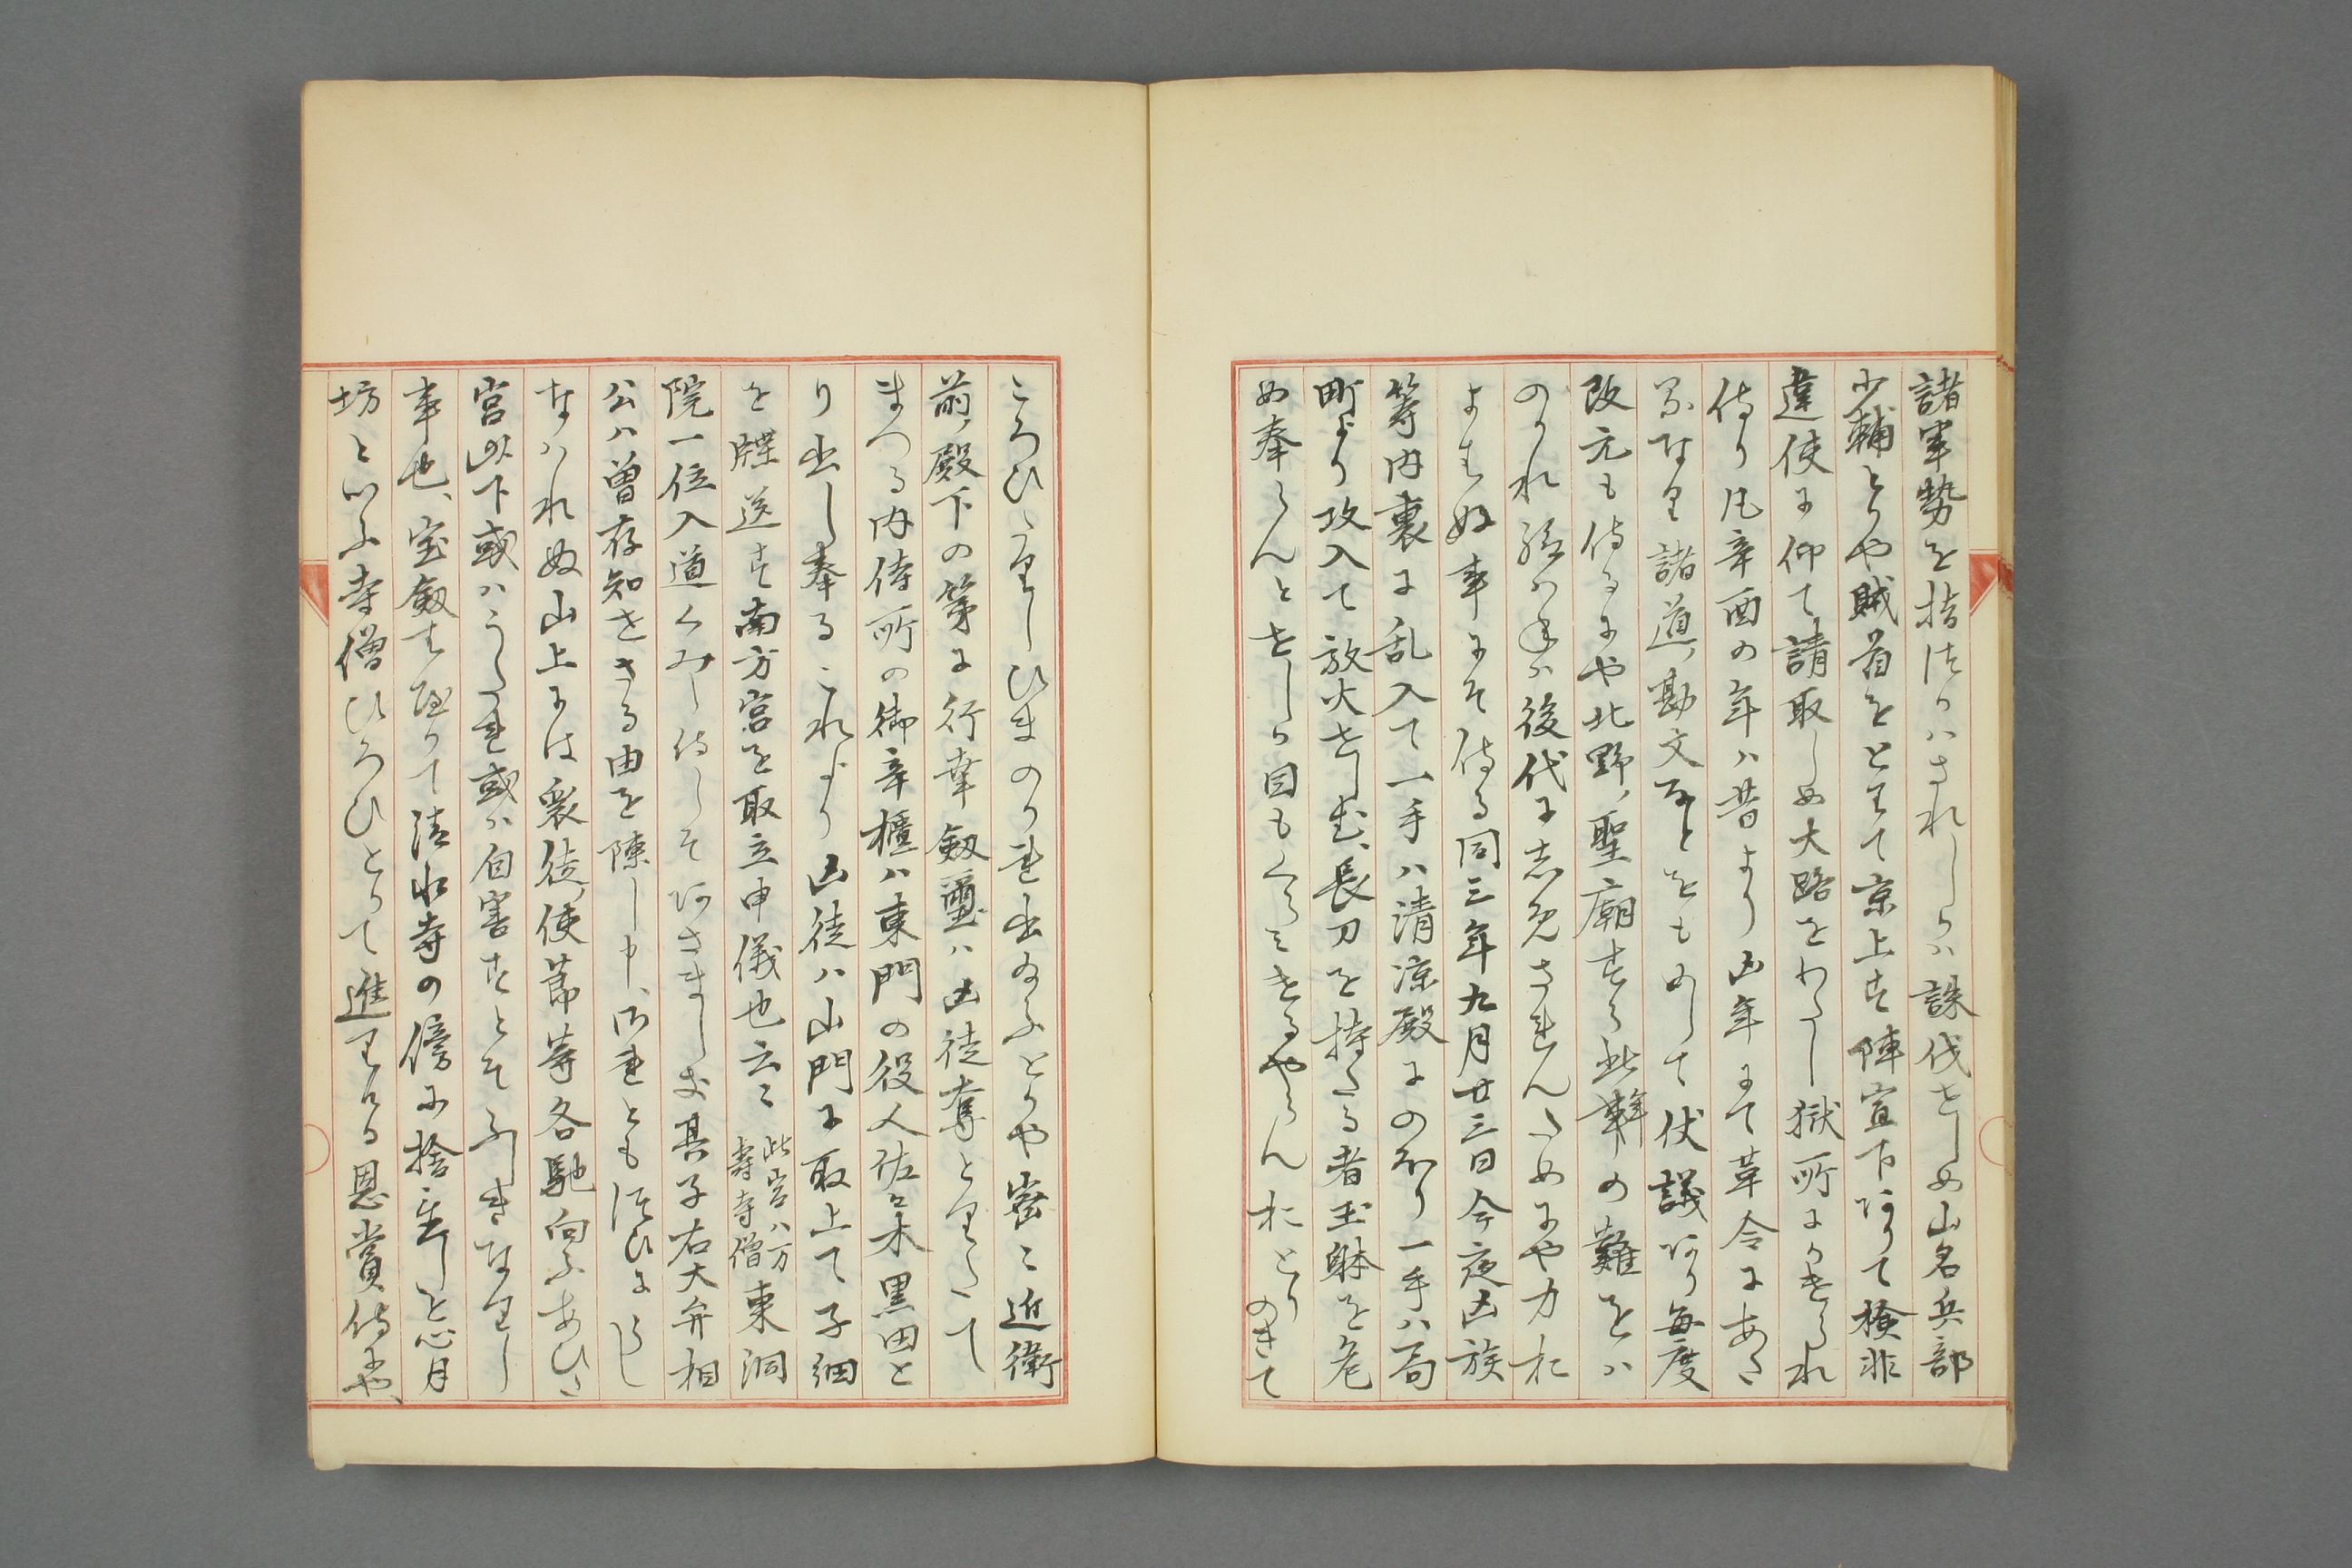 諸軍勢を指つかハされしかハ誅伐せしめ山名兵部
少輔とかや賊首をとりて京上す陣宣下ありて検非
違使に仰て請取しめ大路をわたし獄所にかけられ
侍り凡辛酉の年ハ昔より凶年にて革令にあた
るなり諸道勘文なとをもめして仗議あり毎度
改元も侍るにや北野聖廟すら此辜の難をハ
のかれ給ハねハ後代に志免されんためにや力お
よはぬ事にそ侍る同三年九月廿三日今夜凶族
等内裏に乱入て一手ハ清涼殿にのほり一手ハ局
町より攻入て放火せしむ長刀を持たる者玉躰を危
め奉らんとせしか目もくらミけるやらんおとりのきて
ころひたりしひまのかれ出給ふとかや密ニ近衛
前殿下の第に行幸劔璽ハ凶徒奪とりたて
まつる内侍所の御辛櫃ハ東門の役人佐々木黒田と
り出し奉るこれより凶徒ハ山門に取上て子細
を牒送す南方宮を取立申儀也云々 此宮ハ万寿寺僧 東洞
院一位入道くみし侍しそあさましき其子右大弁相
公ハ曽存知せさる由を陳し申されともつゐにうし
なハれぬ山上には衆徒使節等各馳向ふあひた
宮以下或ハうたれ或ハ自害すとそ聞きなりし
事也宝劔は至りて清水寺の傍に捨置しを心月
坊といふ寺僧ひろひとりて進りける恩賞侍にや